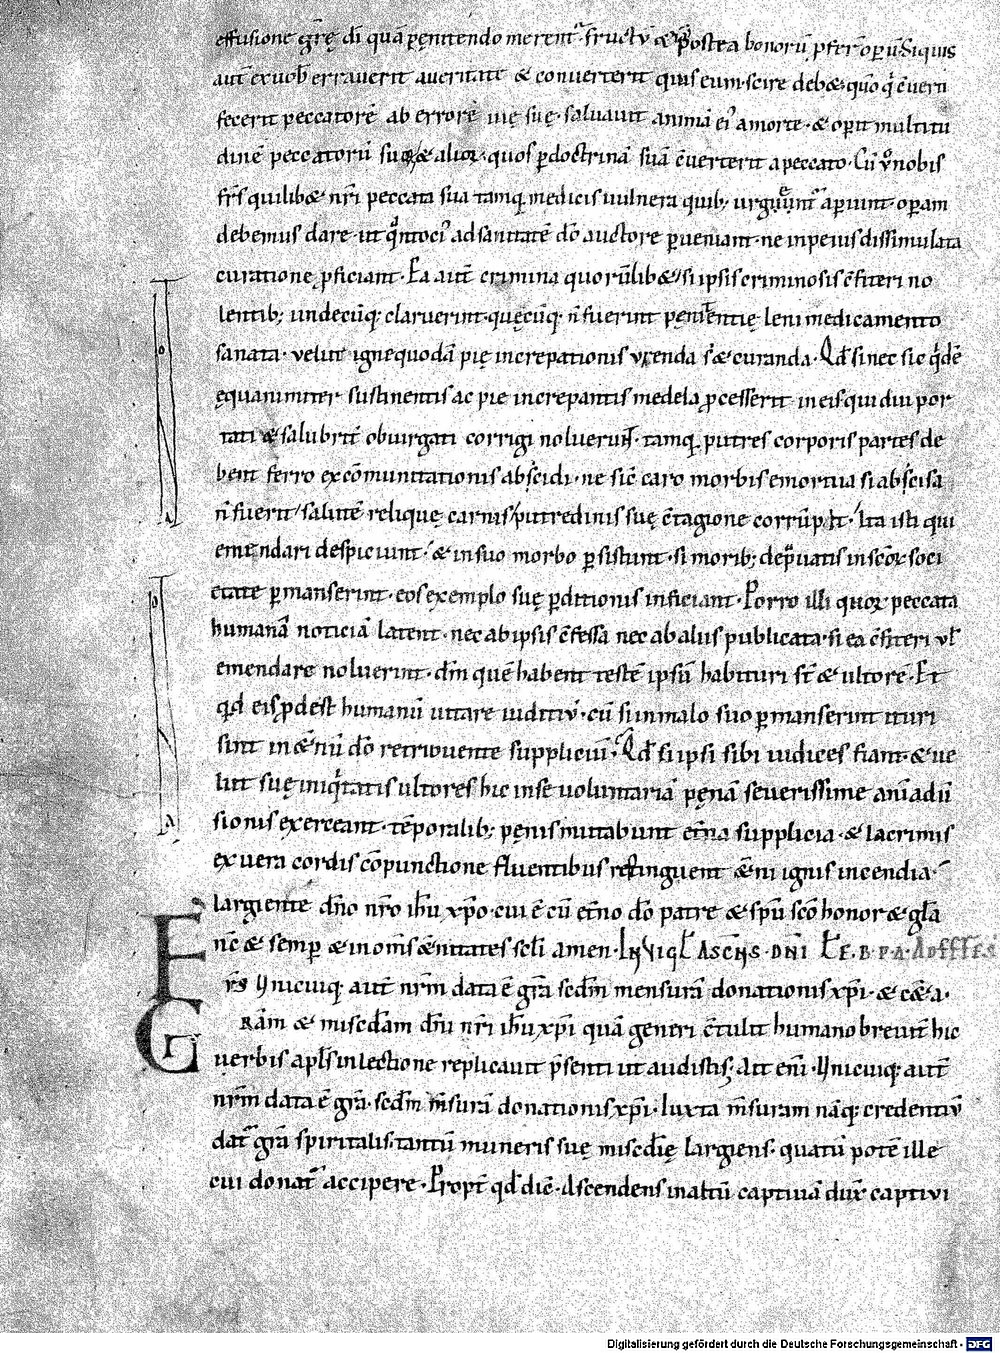 effusione grȩ di quā pęnitendo merent᷒ fructū & postea bonorū pferr̄ opeꝝ. Siquis
aut̄ ex vob̄ erraverit a veritate & converterit quis eum · scire deb& · qm̄ q̇ ɔ̄verti
fecerit peccatorē ab errore uię suę · salvavit animā ei᷒ a morte · & opit multitu
dinē peccatorū suoꝝ & alioꝝ · quos ꝑ doctrinā suā ɔ̄verterit a peccato · Cū v̊ nobis
fr̄s quilib& nr̄i peccata sua tamqͣ medicis vulnera quib; urguunt᷒ apiunt · opam
debemus dare · ut q̊ntoci᷒ ad sanitatē dō auctore ꝑveniant · ne in peius dissimulata
curatione ꝓficiant · Ea aut̄ crimina quorūlib& si ipsis criminosis ɔ̄fiteri no
lentib; undecūq; claruerint · quęcūq; n̄ fuerint pęnitentię leni medicamento
sanata · velut igne quodā pię increpationis urenda st̄ & curanda · Qd̄ si nec sic q̇dē
ęquanimiter sustinentis ac pie increpantis medela ꝓcesserit in eis qui diu por
tati & salubrit̄ obiurgati corrigi noluerunt · tamqͣ putres corporis partes de
bent ferro excōmunicationis abscidi · ne sic̄ caro morbis emortua si abscisa
n̄ fuerit / salutē relique carnis putredinis suę ɔ̄tagione corrūpit · Ita isti qui
emendari despiciunt · & in suo morbo ꝑsistunt · si morib; dep̄vatis in sc̄oꝝ soci
etate ꝑmanserint · eos exemplo suę ꝑditionis inficiant · Porro illi quoꝝ peccata
humanā noticiā latent · nec ab ipsis ɔ̄fessa nec ab aliis publicata · si ea ɔ̄fiteri vł
emendare noluerint · dm̄ quē habent testē ipsū habituri st̄ & ultorē · Et
qd eis ꝓdest humanū vitare iuditiū · cū si in malo suo ꝑmanserint ituri
sint in ęt̄nū dō retribuente suppliciū · Qd̄ si ipsi sibi iudices fiant · & ve
lut suę iniq̇tatis ultores hic in se voluntariā pęnā severissime animadū
sionis exerceant · tēporalib; pęnis mutabunt et̄na supplicia · & lacrimis
ex vera cordis cōpunctione fluentibus restinguent &̄ni ignis incendia ·
largiente dn̄o nr̄o ihu xp̄o · cui ē cū et̄no dō patre & spū scō honor & gl̄a
nc̄ & semp & in om̄s &̄nitates sclī amen · IN VIGL̄ ASCENS · DNI L̄E · B · PA · AD EFFES
Fr̄s Unicuiq; aut̄ nrm̄ data ē gra scdm̄ mensurā donationis xp̄i · & c&a ·
GRam & miscdam dn̄i nr̄i ihu xp̄i quā generi ɔ̄tulit humano brevit̄ hic
verbis apl̄s in lectione replicavit p̄senti ut audistis · Ait eni · Unicuiq; aut̄
nrm̄ data ē gra · scdm̄ m̄surā donationis xp̄i · Iuxta m̄suram nāq; credentiū
dat᷒ gra spiritalis · tantū muneris suę miscdię largiens · quatū potē ille
cui donat᷒ accipere · Propt̄ qd dic̄ · Ascendens in altū captivā dux̄ captivi
Digitalisierung gefördert durch die Deutsche Forschungsgemeinschaft - DFG